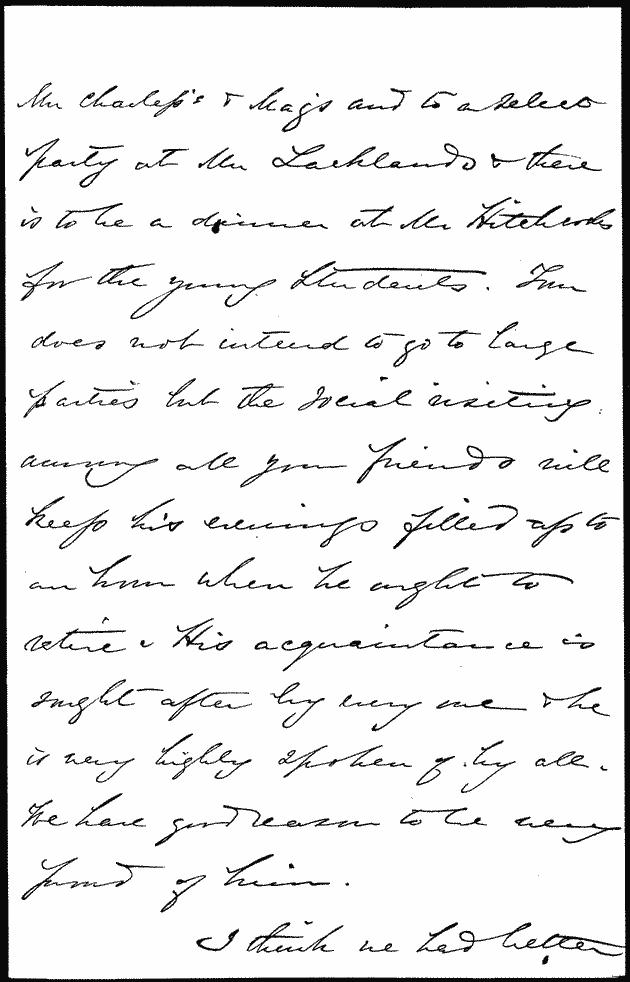 Mr Charless's & Mags and to a select
party at Mr Lacklands & there
is to be a dinner at Mr Hitchcocks
for the young Students. Tom
does not intend to go to large
parties but the social visiting
among all your friends will
keep his evenings filled up to
an hour when he ought to
retire & His acquaintance is
sought after by every one & he
is very highly spoken of by all.
We have good reason to be very
proud of him.
I think we had better